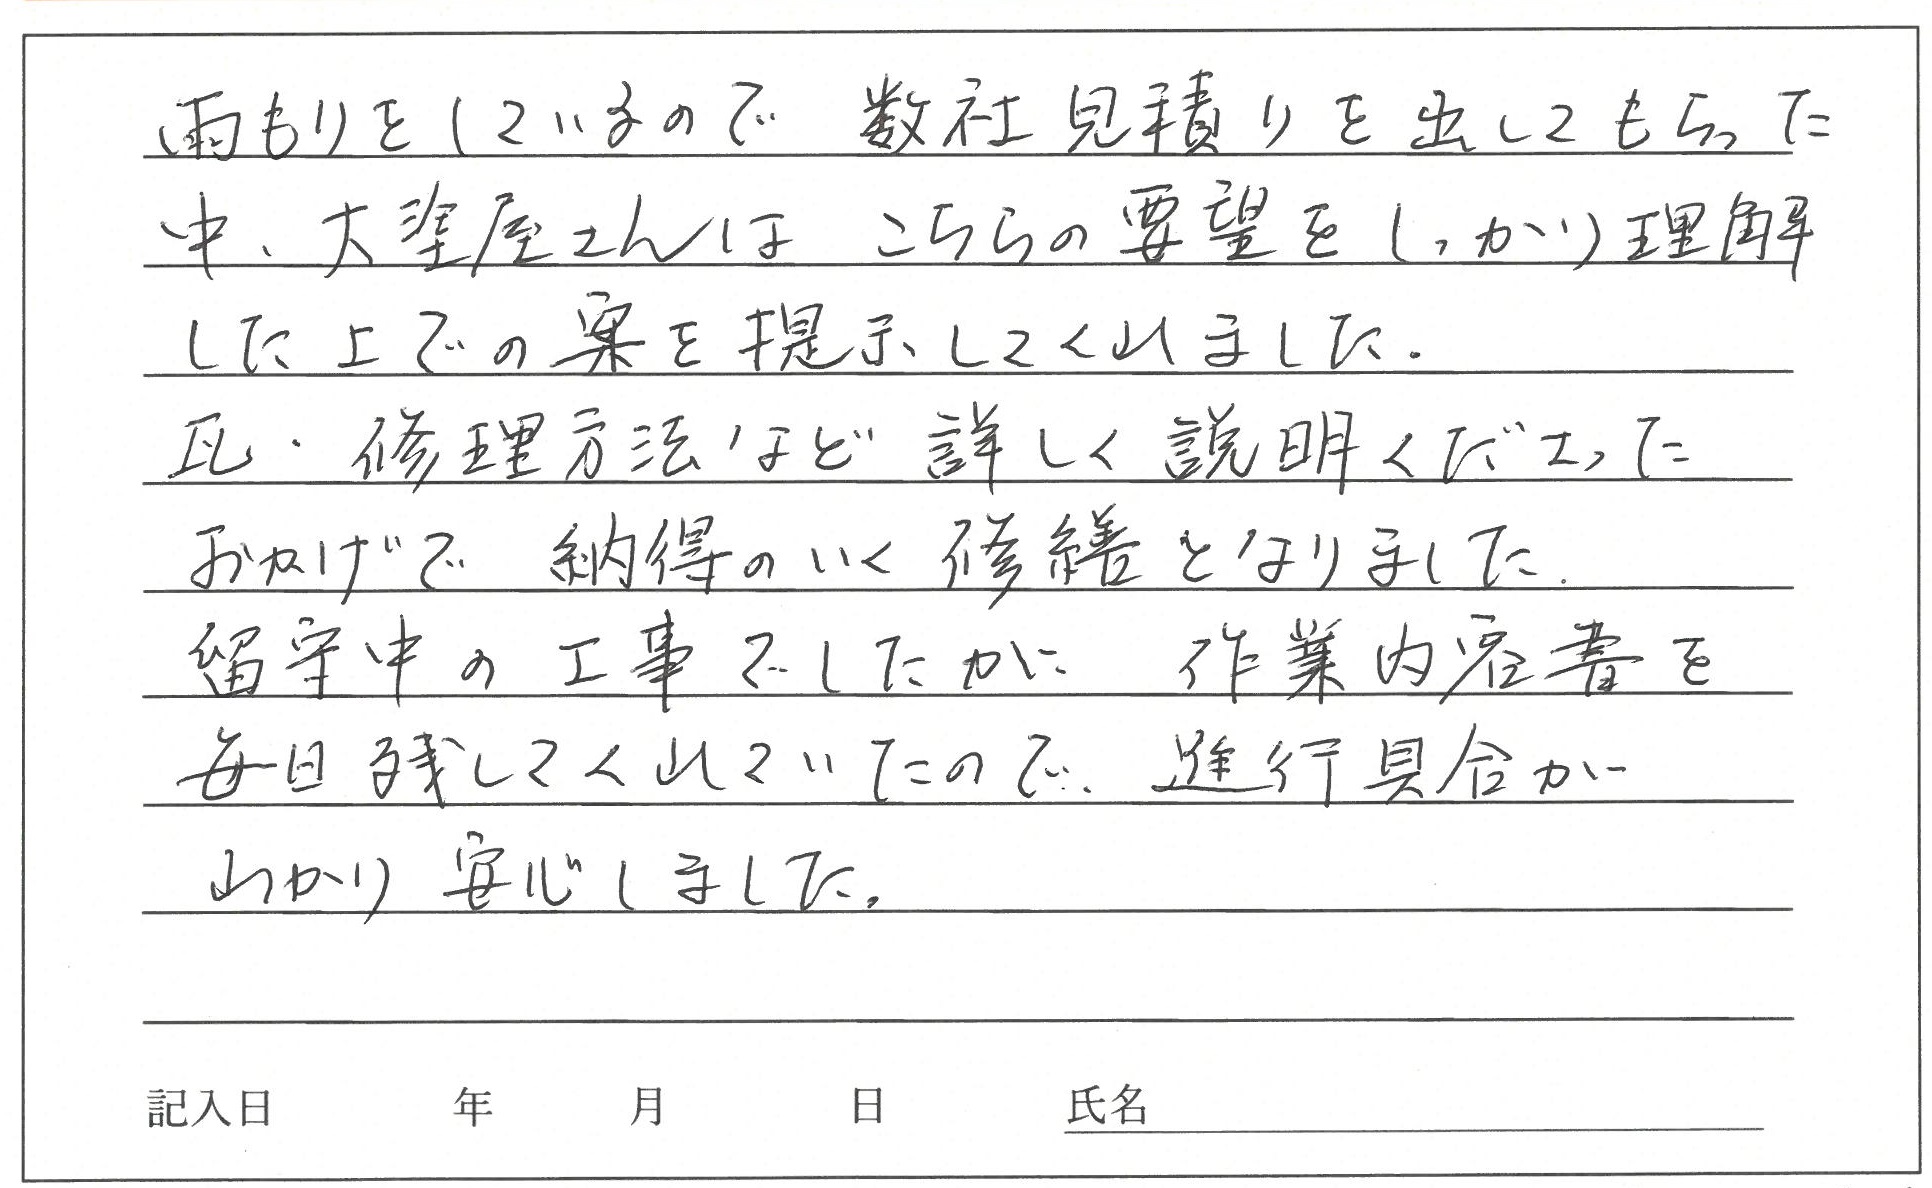 雨もりをしているので 数社見積りを出してもらった
中、大塗屋さんは こちらの要望をしっかり理解
した上での案を提示してくれました.
瓦・修理方法など 詳しく説明くださった
おかげで 納得のいく修繕となりました.
留守中の工事でしたが 作業内容書を
毎日残してくれていたので、進行具合が
わかり安心しました。
記入日 年 月 日 氏名